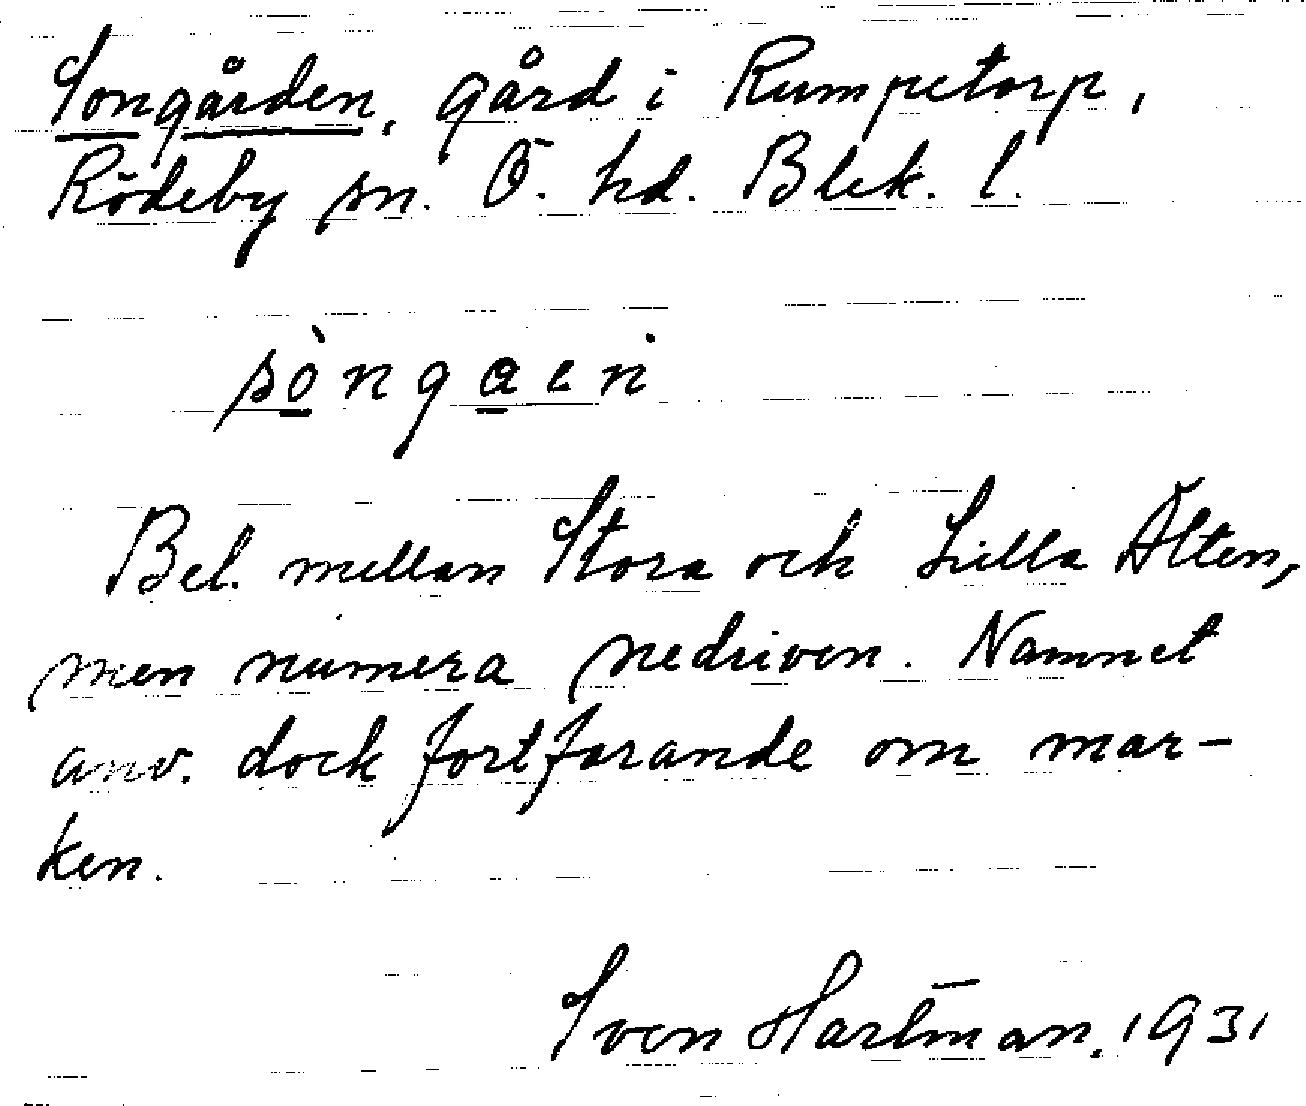 Songården, gård i Rumpetorp,
Rödeby sn. Ö. hd. Blek. l.
sòngaen
Bel. mellan Stora och Lilla Ålten,
men numera nedriven. Namnet
anv. dock fortfarande om mar-
ken.
Sven Hartman. 1931